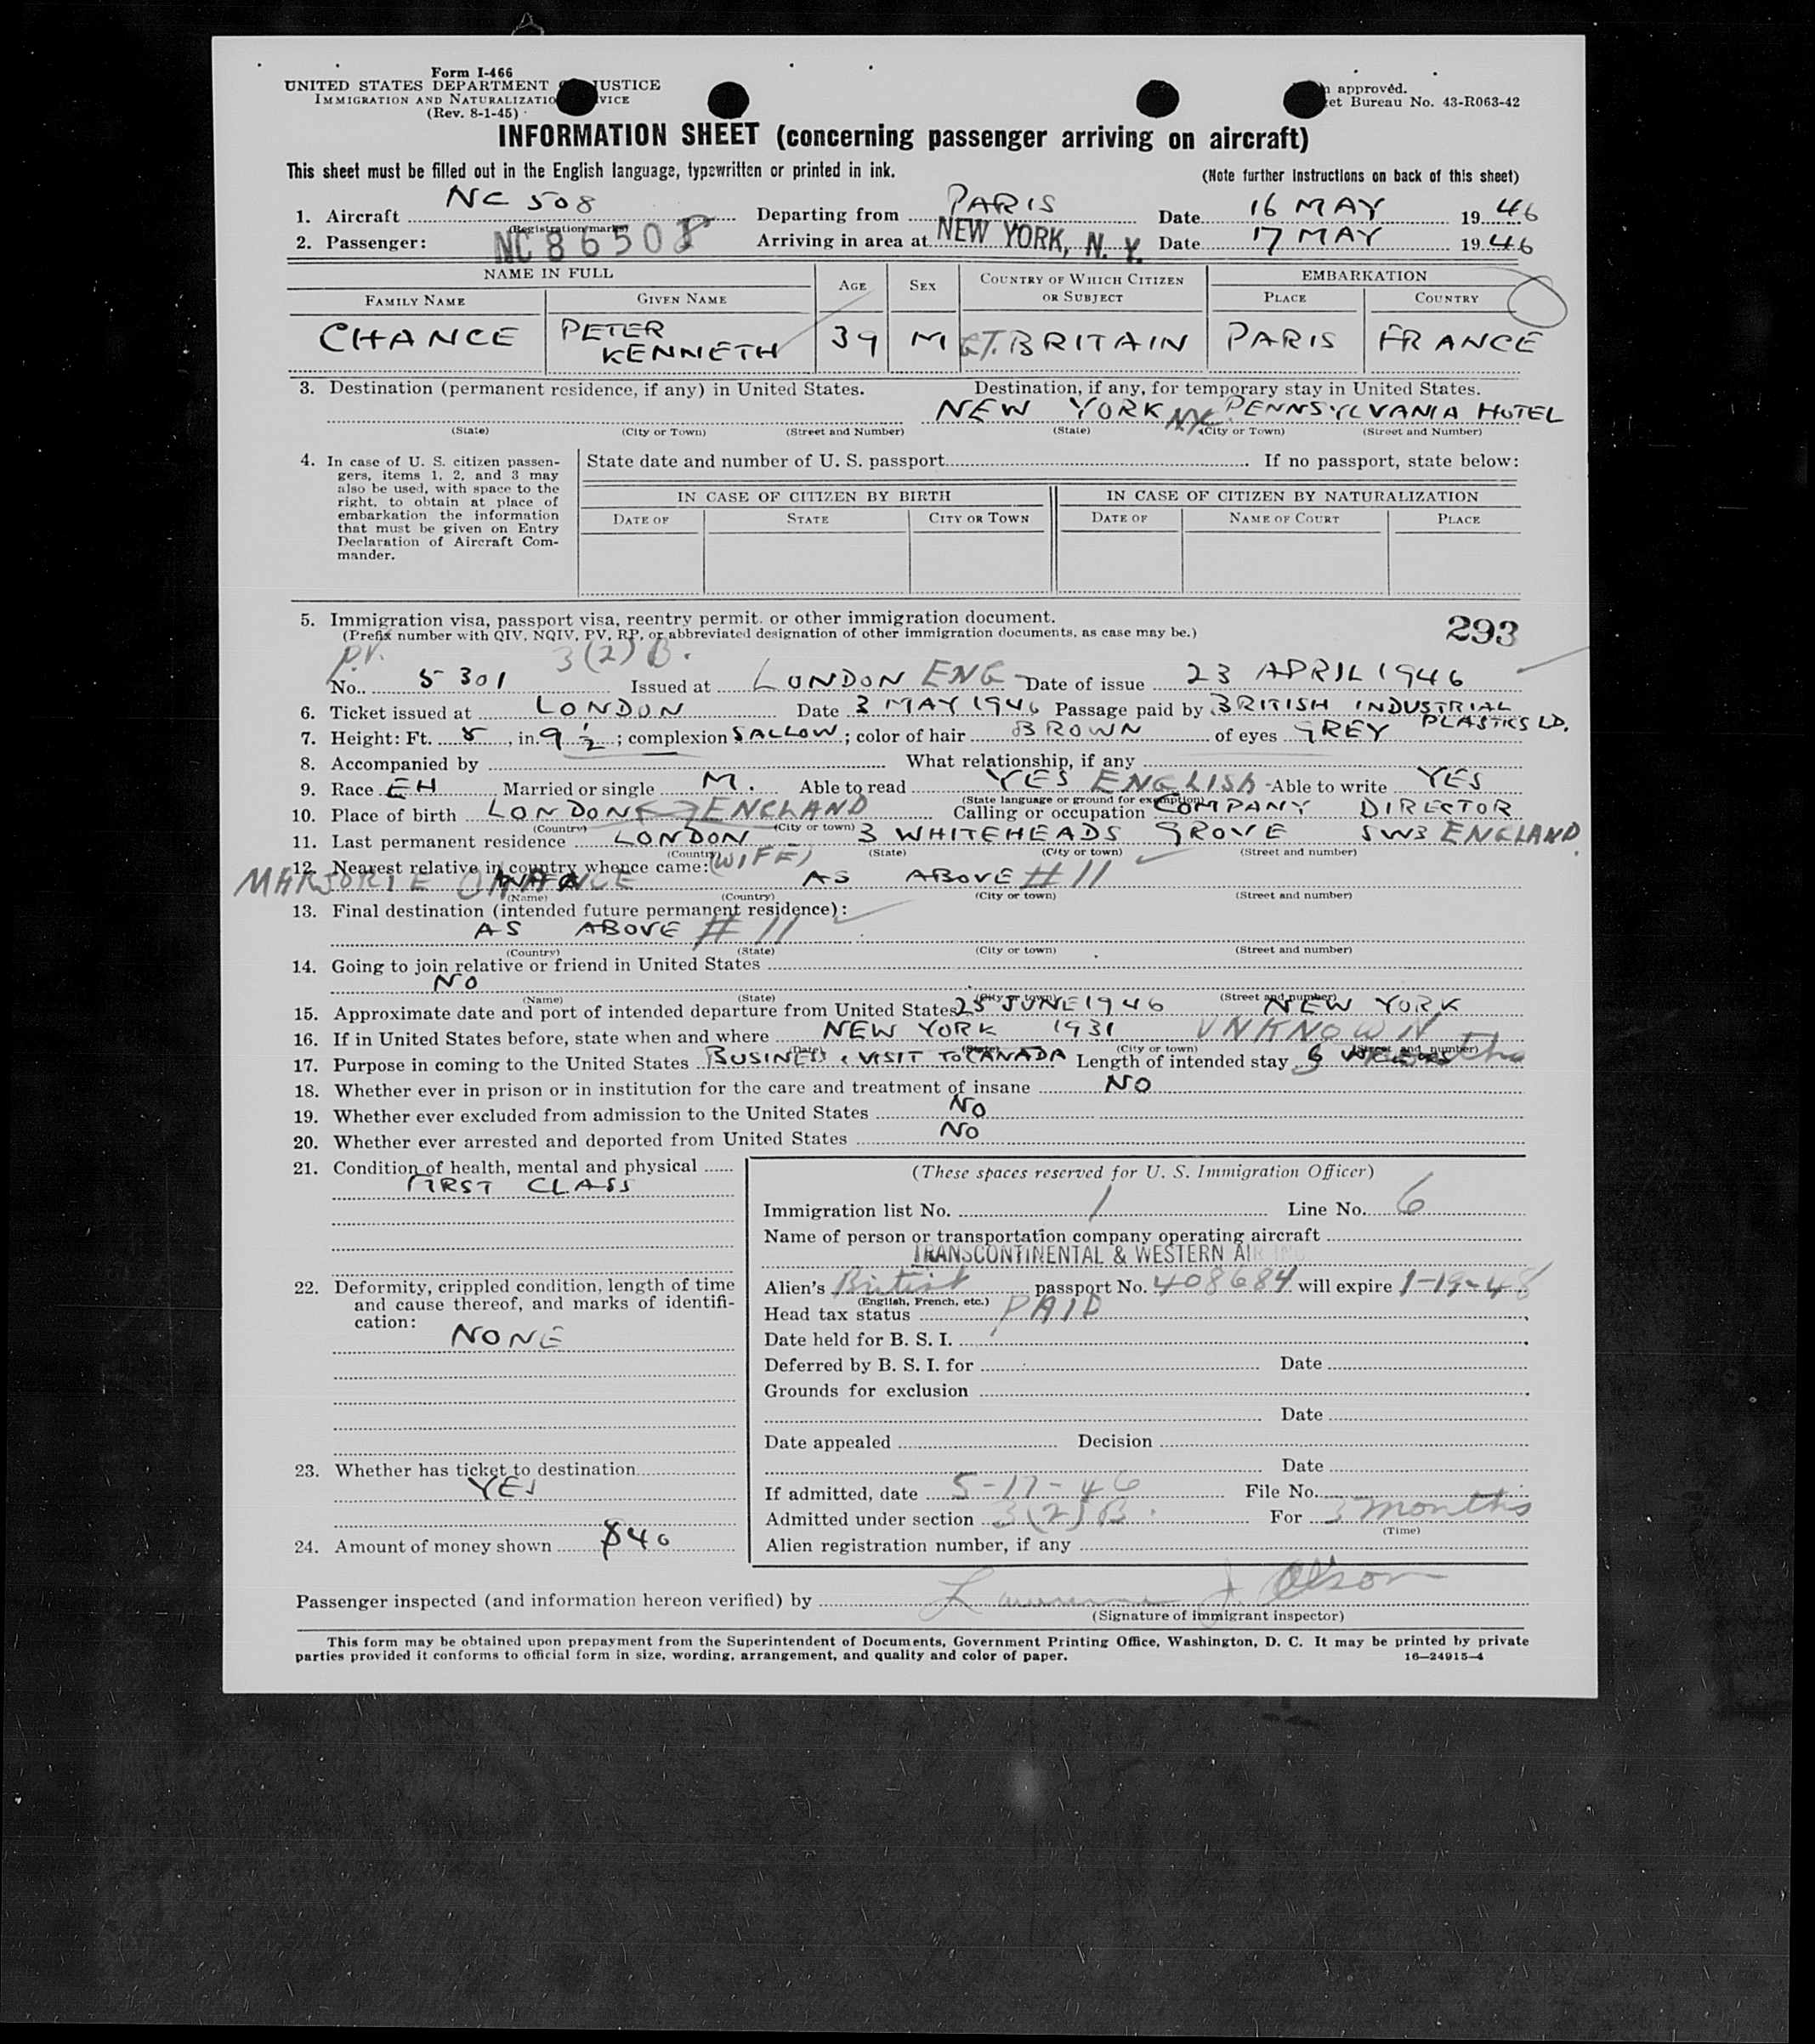 Form I-466
UNITED STATES DEPARTMENT JUSTICE
IMMIGRATION AND NATURALIZATIO VICE
(Rev. 8-1-45)
approved.
et Bureau No. 43-R063-42
INFORMATION SHEET (concerning passenger arriving on aircraft)
This sheet must be filled out in the English language, typewritten or printed in ink. (Note further instructions on back of this sheet)
1. Aircraft NC 508 Departing from PARIS Date 16 MAY 1946
(Registration marks)
2. Passenger: NC 86508 Arriving in area at NEW YORK, N. Y. Date 17 MAY 1946
NAME IN FULL AGE SEX COUNTRY OF WHICH CITIZEN OR SUBJECT EMBARKATION
FAMILY NAME GIVEN NAME PLACE COUNTRY
CHANCE PETER KENNETH 39 M GT. BRITAIN PARIS FRANCE
3. Destination (permanent residence, if any) in United States. Destination, if any, for temporary stay in United States.
NEW YORK NY PENNSYLVANIA HOTEL
(State) (City or Town) (Street and Number) (State) (City or Town) (Street and Number)
4. In case of U. S. citizen passen-
gers, items 1, 2, and 3 may
also be used, with space to the
right, to obtain at place of
embarkation the information
that must be given on Entry
Declaration of Aircraft Com-
mander.
State date and number of U. S. passport. If no passport, state below:
IN CASE OF CITIZEN BY BIRTH IN CASE OF CITIZEN BY NATURALIZATION
DATE OF STATE CITY OR TOWN DATE OF NAME OF COURT PLACE
5. Immigration visa, passport visa, reentry permit, or other immigration document.
(Prefix number with QIV, NQIV, PV, RP, or abbreviated designation of other immigration documents, as case may be.)
293
P.V. 3(2) B.
No. 5301 Issued at LONDON ENG Date of issue 23 APRIL 1946
6. Ticket issued at LONDON Date 3 MAY 1946 Passage paid by BRITISH INDUSTRIAL PLASTICS LD.
7. Height: Ft. 5, in. 9 1/2; complexion SALLOW; color of hair BROWN of eyes GREY
8. Accompanied by What relationship, if any
9. Race EH Married or single M. Able to read YES ENGLISH Able to write YES
(State language or ground for exemption)
10. Place of birth LONDON ENGLAND Calling or occupation COMPANY DIRECTOR
(Country) (City or town)
11. Last permanent residence LONDON 3 WHITEHEADS GROVE SW3 ENGLAND
(Country) (State) (City or town) (Street and number)
12. Nearest relative in country whence came: (WIFE)
MARJORIE CHANCE AS ABOVE # 11
(Name) (Country) (City or town) (Street and number)
13. Final destination (intended future permanent residence):
AS ABOVE # 11
(Country) (State) (City or town) (Street and number)
14. Going to join relative or friend in United States
NO
(Name) (State) (City or town) (Street and number)
15. Approximate date and port of intended departure from United States 25 JUNE 1946 NEW YORK
16. If in United States before, state when and where NEW YORK 1931 UNKNOWN
(Date) (State) (City or town) (Street and number)
17. Purpose in coming to the United States BUSINESS & VISIT TO CANADA Length of intended stay
18. Whether ever in prison or in institution for the care and treatment of insane NO
19. Whether ever excluded from admission to the United States NO
20. Whether ever arrested and deported from United States NO
21. Condition of health, mental and physical
FIRST CLASS
22. Deformity, crippled condition, length of time
and cause thereof, and marks of identifi-
cation:
NONE
23. Whether has ticket to destination
YES
24. Amount of money shown $40
(These spaces reserved for U. S. Immigration Officer)
Immigration list No. 1 Line No. 6
Name of person or transportation company operating aircraft
TRANSCONTINENTAL & WESTERN AIR INC
Alien's British passport No. 408684 will expire 1-19-48
(English, French, etc.)
Head tax status PAID
Date held for B. S. I.
Deferred by B. S. I. for Date
Grounds for exclusion
Date
Date appealed Decision
Date
If admitted, date 5-17-46 File No.
Admitted under section 3(2) B. For 3 months
(Time)
Alien registration number, if any
Passenger inspected (and information hereon verified) by Lawrence J. Olson
(Signature of immigrant inspector)
This form may be obtained upon prepayment from the Superintendent of Documents, Government Printing Office, Washington, D. C. It may be printed by private
parties provided it conforms to official form in size, wording, arrangement, and quality and color of paper. 16—24915-4